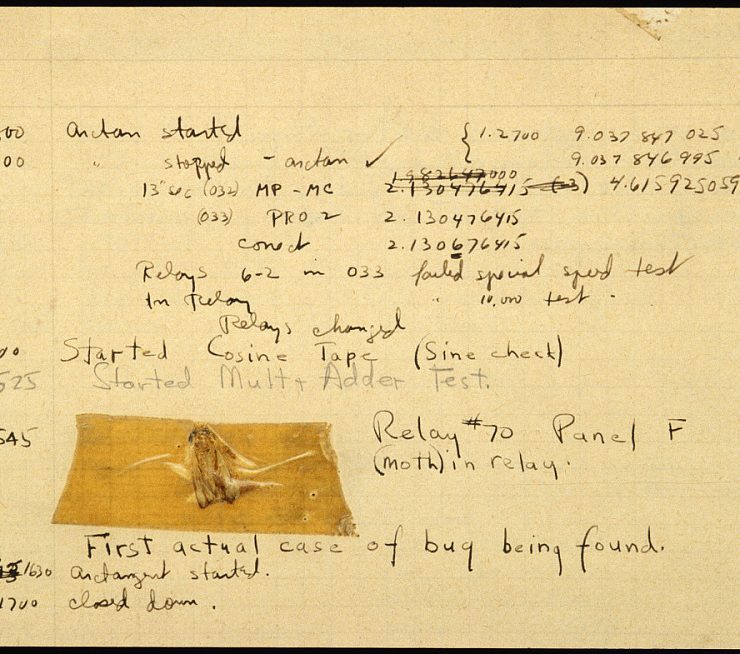 00 arctan started { 1.2700 9.037 847 025
00 " stopped - arctan ✓ 9.037 846 995
13" sec (032) MP - MC 2.130476415 (-3) 4.615925059
(033) PRO 2 2.130476415
conect 2.130676415
Relays 6-2 in 033 failed special speed test
In Relay " 10,000 test .
Relays changed
00 Started Cosine Tape (Sine check)
525 Started Mult + Adder Test.
545 Relay #70 Panel F
(moth) in relay.
First actual case of bug being found.
1630 arctangent started.
1700 closed down.